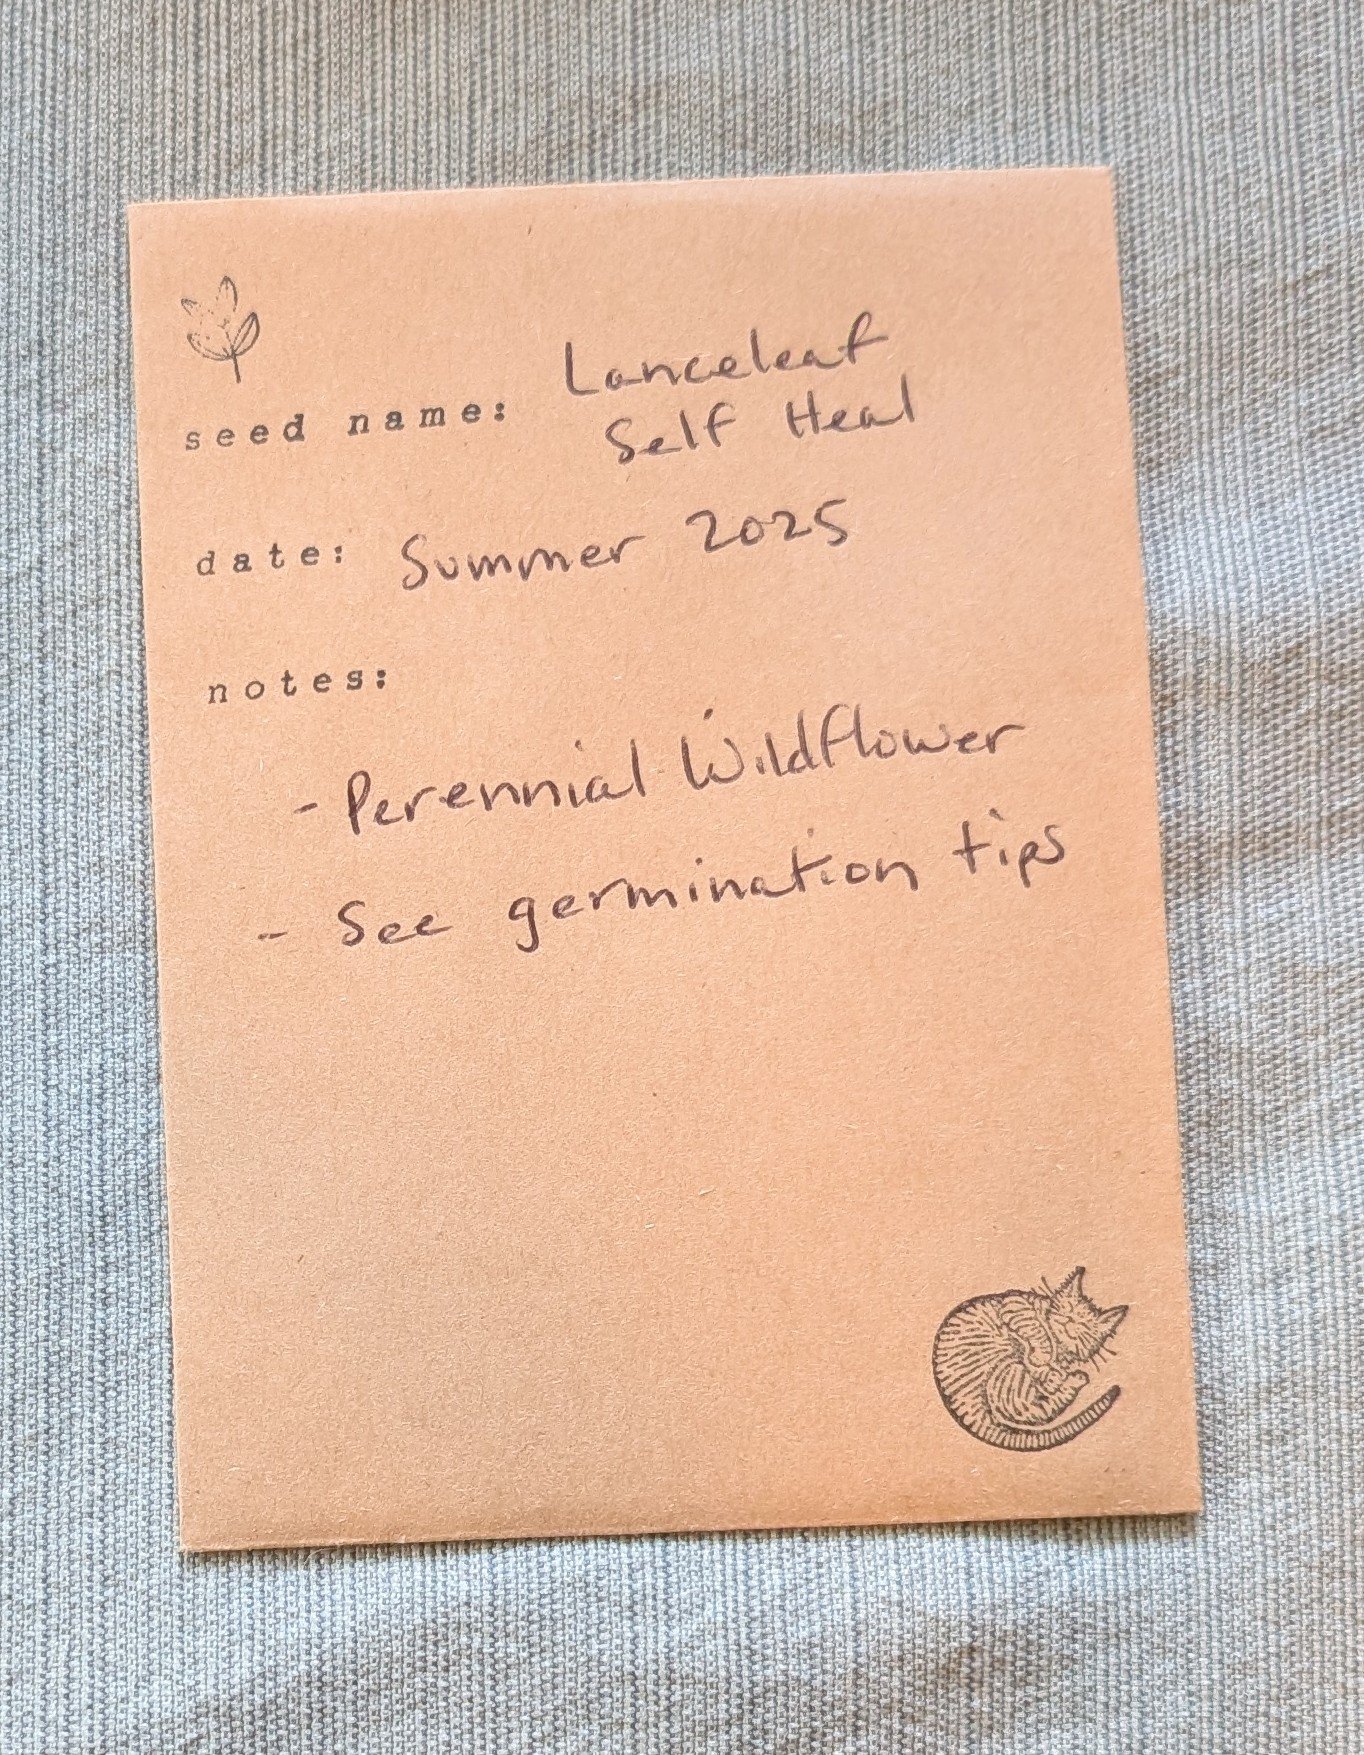 seed name: Lanceleaf
Self Heal
date: Summer 2025
notes:
- Perennial Wildflower
- See germination tips